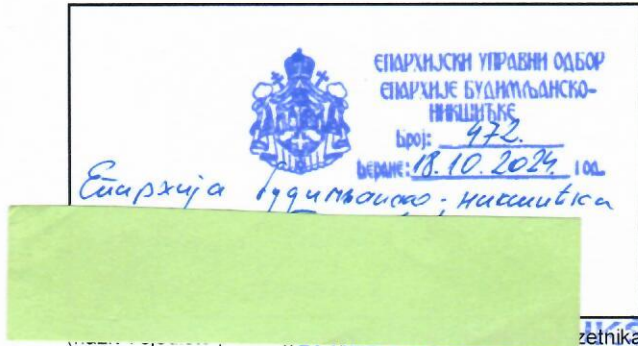 ЄПАРХИЈСКИ УПРАВНИ ОДБОР
ЄПАРХИЈЕ БУДИМЉАНСКО-
НИКШИЋКЕ
Број: 472.
Беране: 18.10.2024. год.
Епархија будимљанско-никшићка
zetnika